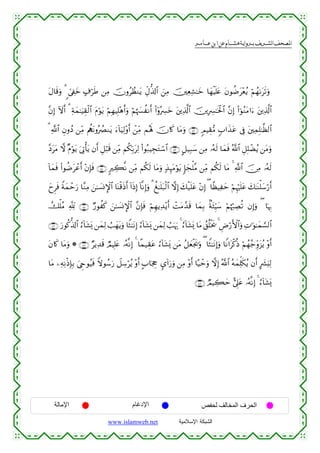 المصحف الشريف برواية هشام عن ابن عامر
وَتَرَىٰهُمْ يُعْرَضُونَ عَلَيْهَا خَٰشِعِينَ مِنَ ٱلذُّلِّ يَنظُرُونَ مِن طَرْفٍ خَفِىٍّ وَقَالَ
ٱلَّذِينَ ءَامَنُوٓا۟ إِنَّ ٱلْخَٰسِرِينَ ٱلَّذِينَ خَسِرُوٓا۟ أَنفُسَهُمْ وَأَهْلِيهِمْ يَوْمَ ٱلْقِيَٰمَةِ أَلَآ إِنَّ
ٱلظَّٰلِمِينَ فِى عَذَابٍ مُّقِيمٍ وَمَا كَانَ لَهُم مِّنْ أَوْلِيَآءَ يَنصُرُونَهُم مِّن دُونِ ٱللَّهِ
وَمَن يُضْلِلِ ٱللَّهُ فَمَا لَهُۥ مِن سَبِيلٍ ٱسْتَجِيبُوا۟ لِرَبِّكُم مِّن قَبْلِ أَن يَأْتِىَ يَوْمٌ لَّا مَرَدَّ
لَهُۥ مِنَ ٱللَّهِ مَا لَكُم مِّن مَّلْجَإٍ يَوْمَئِذٍ وَمَا لَكُم مِّن نَّكِيرٍ فَإِنْ أَعْرَضُوا۟ فَمَآ
أَرْسَلْنَٰكَ عَلَيْهِمْ حَفِيظًا إِنْ عَلَيْكَ إِلَّا ٱلْبَلَٰغُ وَإِنَّآ إِذَآ أَذَقْنَا ٱلْإِنسَٰنَ مِنَّا رَحْمَةً فَرِحَ
بِهَا وَإِن تُصِبْهُمْ سَيِّئَةٌ بِمَا قَدَّمَتْ أَيْدِيهِمْ فَإِنَّ ٱلْإِنسَٰنَ كَفُورٌ لِّلَّهِ مُلْكُ
ٱلسَّمَٰوَٰتِ وَٱلْأَرْضِ يَخْلُقُ مَا يَشَآءُ يَهَبُ لِمَن يَشَآءُ إِنَٰثًا وَيَهَبُ لِمَن يَشَآءُ ٱلذُّكُورَ
أَوْ يُزَوِّجُهُمْ ذُكْرَانًا وَإِنَٰثًا وَيَجْعَلُ مَن يَشَآءُ عَقِيمًا إِنَّهُۥ عَلِيمٌ قَدِيرٌ وَمَا كَانَ
لِبَشَرٍ أَن يُكَلِّمَهُ ٱللَّهُ إِلَّا وَحْيًا أَوْ مِن وَرَآئِ حِجَابٍ أَوْ يُرْسِلَ رَسُولًا فَيُوحِىَ بِإِذْنِهِۦ مَا
يَشَآءُ إِنَّهُۥ عَلِىٌّ حَكِيمٌ
الحرف المخالف لحفص الإدغام الإمالة
الشبكة الإسلامية www.islamweb.net